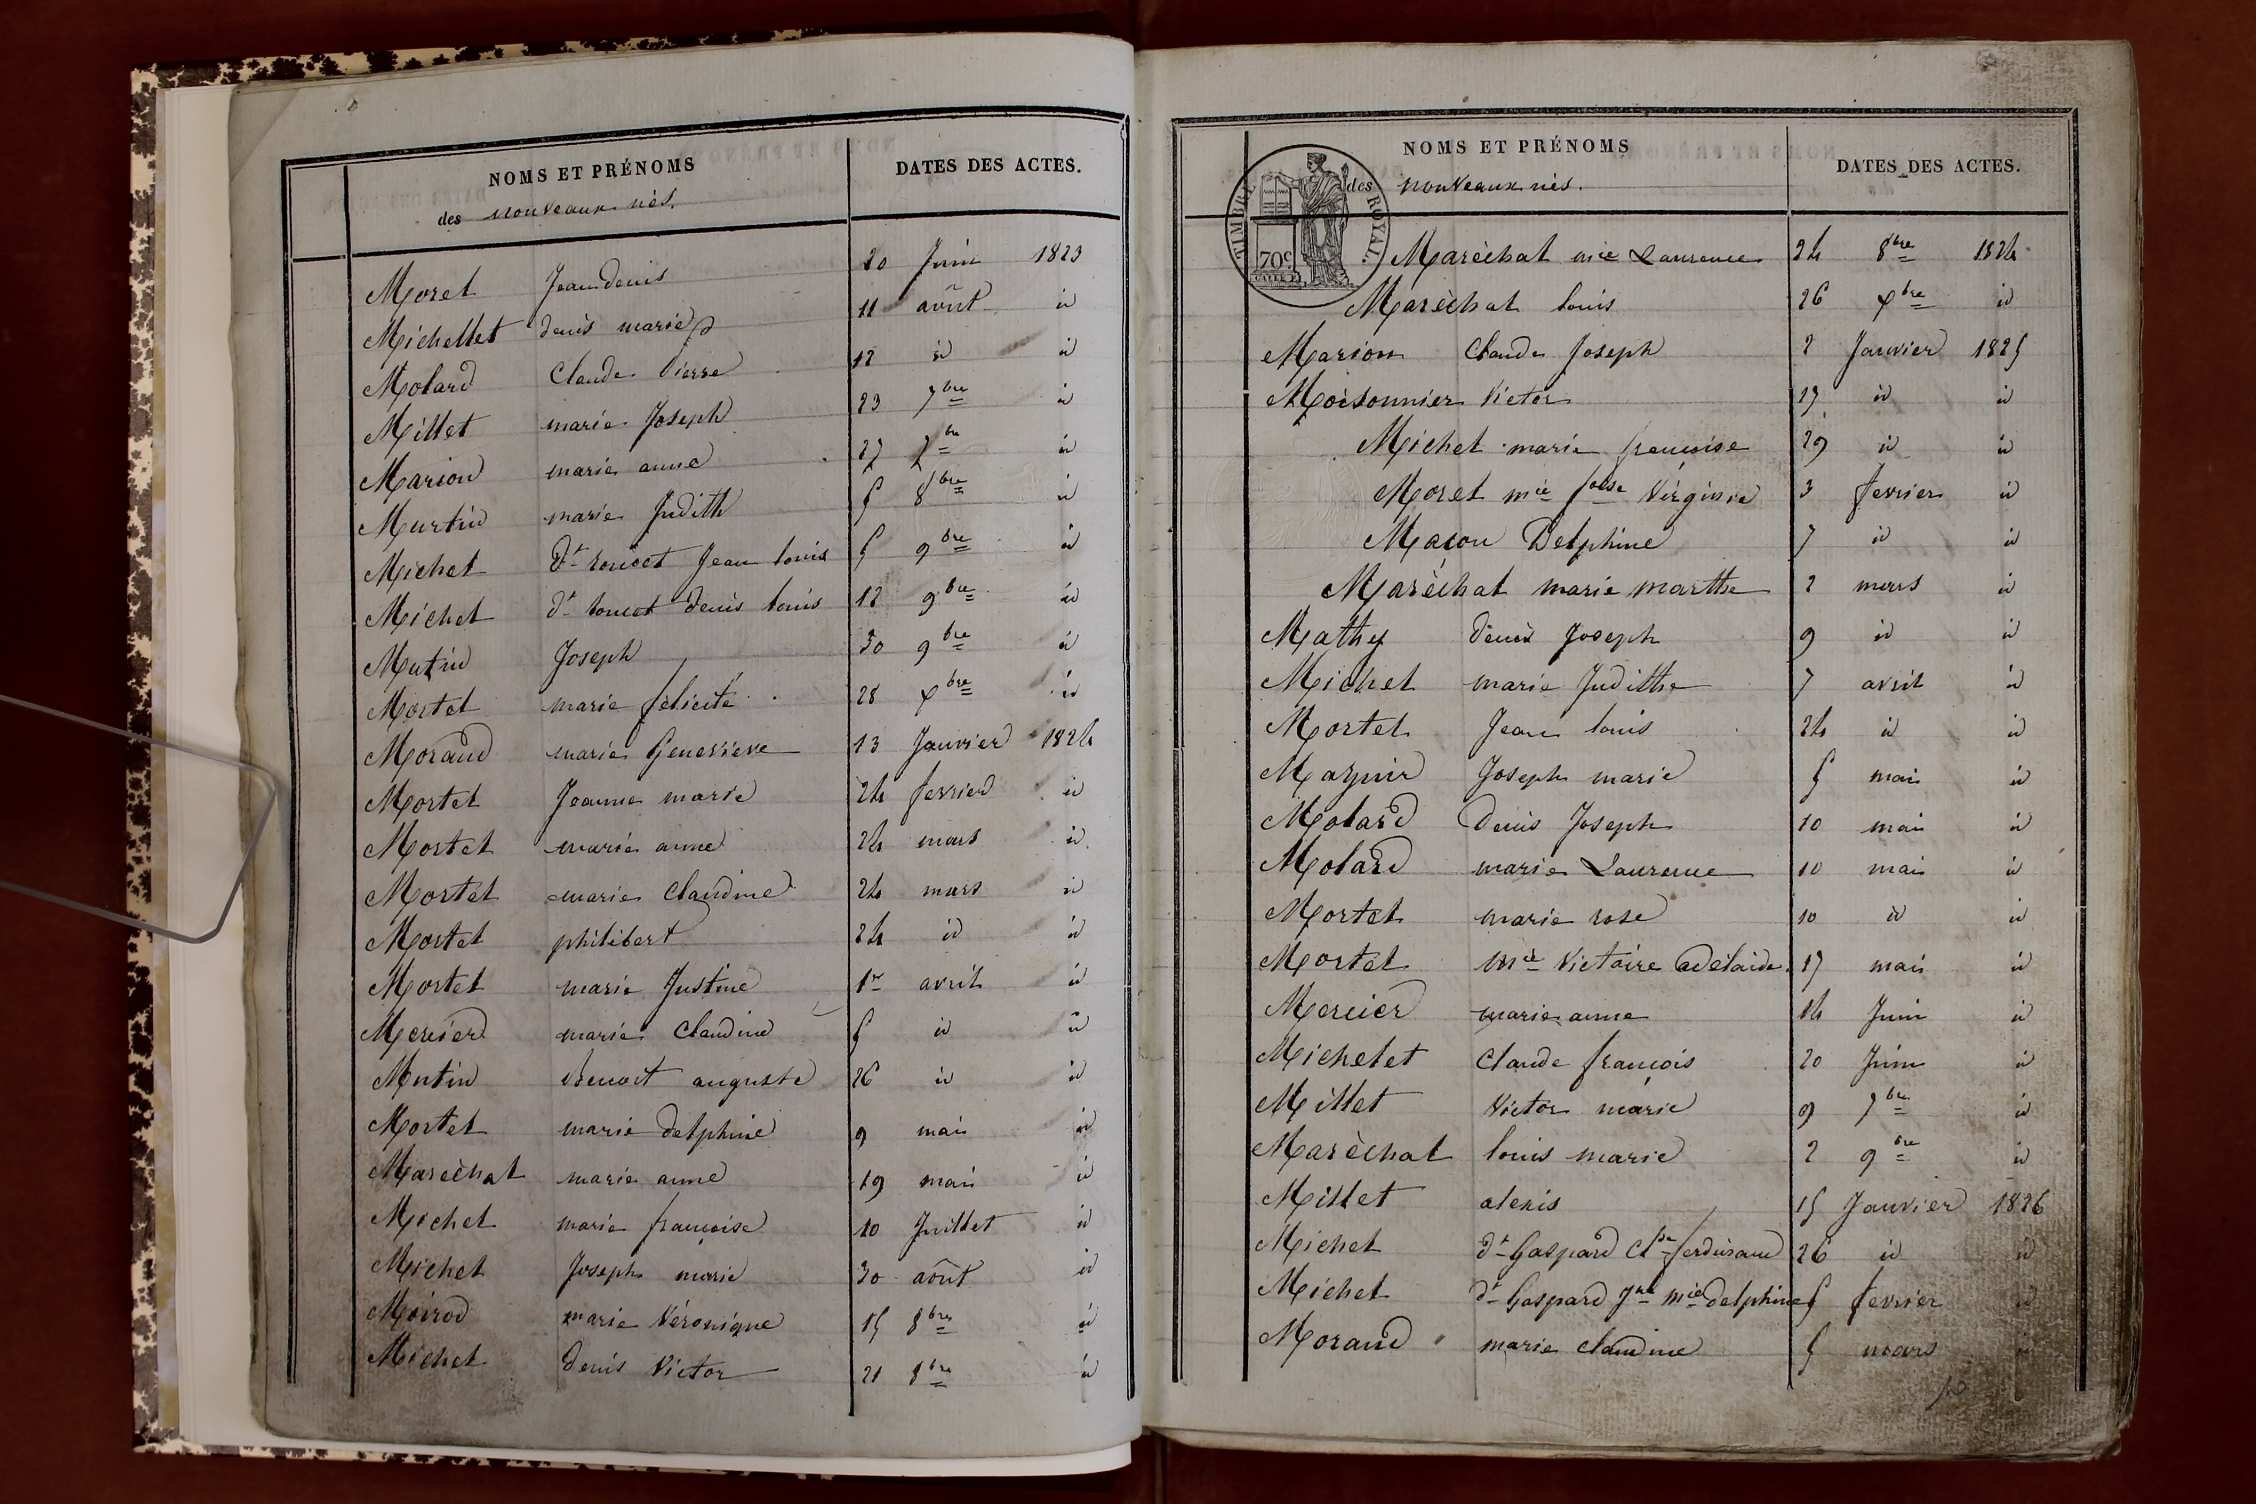 NOMS ET PRÉNOMS DATES DES ACTES.
des nouveaux nés.
Moret Jean denis 20 Juin 1823
Michellet denis marie 11 août id
Molard Claude Pierre 12 id id
Millet marie Joseph 23 7bre id
Marion marie anne 27 7bre id
Murtin marie Judith 5 8bre id
Michet dt Jean louis 5 9bre id
Michet dt denis louis 12 9bre id
Mutin Joseph 30 9bre id
Mortet marie félicité 28 Xbre id
Morand marie Genevieve 13 Janvier 1824
Mortet Jeanne marie 24 fevrier id
Mortet marie anne 24 mars id
Mortet marie Claudine 24 mars id
Mortet philibert 24 id id
Mortet marie Justine 1er avril id
Mercier marie Claudine 5 id id
Mutin Benoit auguste 26 id id
Mortet marie delphine 9 mai id
Maréchal marie anne 19 mai id
Michet marie francoise 10 Juillet id
Michet Joseph marie 30 août id
Moirod marie Véronique 15 8bre id
Michet denis Victor 21 8bre id
NOMS ET PRÉNOMS DATES DES ACTES.
des nouveaux nés.
TIMBRE ROYAL.
70c
Maréchal mie Laurence 24 8bre 1824
Maréchal louis 26 Xbre id
Marion Claude Joseph 2 Janvier 1825
Moisonnier Victor 17 id id
Michet marie francoise 29 id id
Moret mie foise Virginie 3 fevrier id
Macon Delphine 7 id id
Maréchal marie marthe 2 mars id
Mathy denis Joseph 9 id id
Michet marie Judithe 7 avril id
Mortet Jean louis 24 id id
Magnin Joseph marie 5 mai id
Molard denis Joseph 10 mai id
Molard marie Laurence 10 mai id
Mortet marie rose 10 id id
Mortet mie Victoire adélaide 17 mai id
Mercier marie anne 14 Juin id
Michelet Claude francois 20 Juin id
Millet Victor marie 9 7bre id
Maréchal louis marie 2 9bre id
Millet alexis 15 Janvier 1826
Michet dt Gaspard Clde ferdinand 26 id id
Michet dt Gaspard Jne mie delphine 5 fevrier id
Morand marie claudine 5 mars id